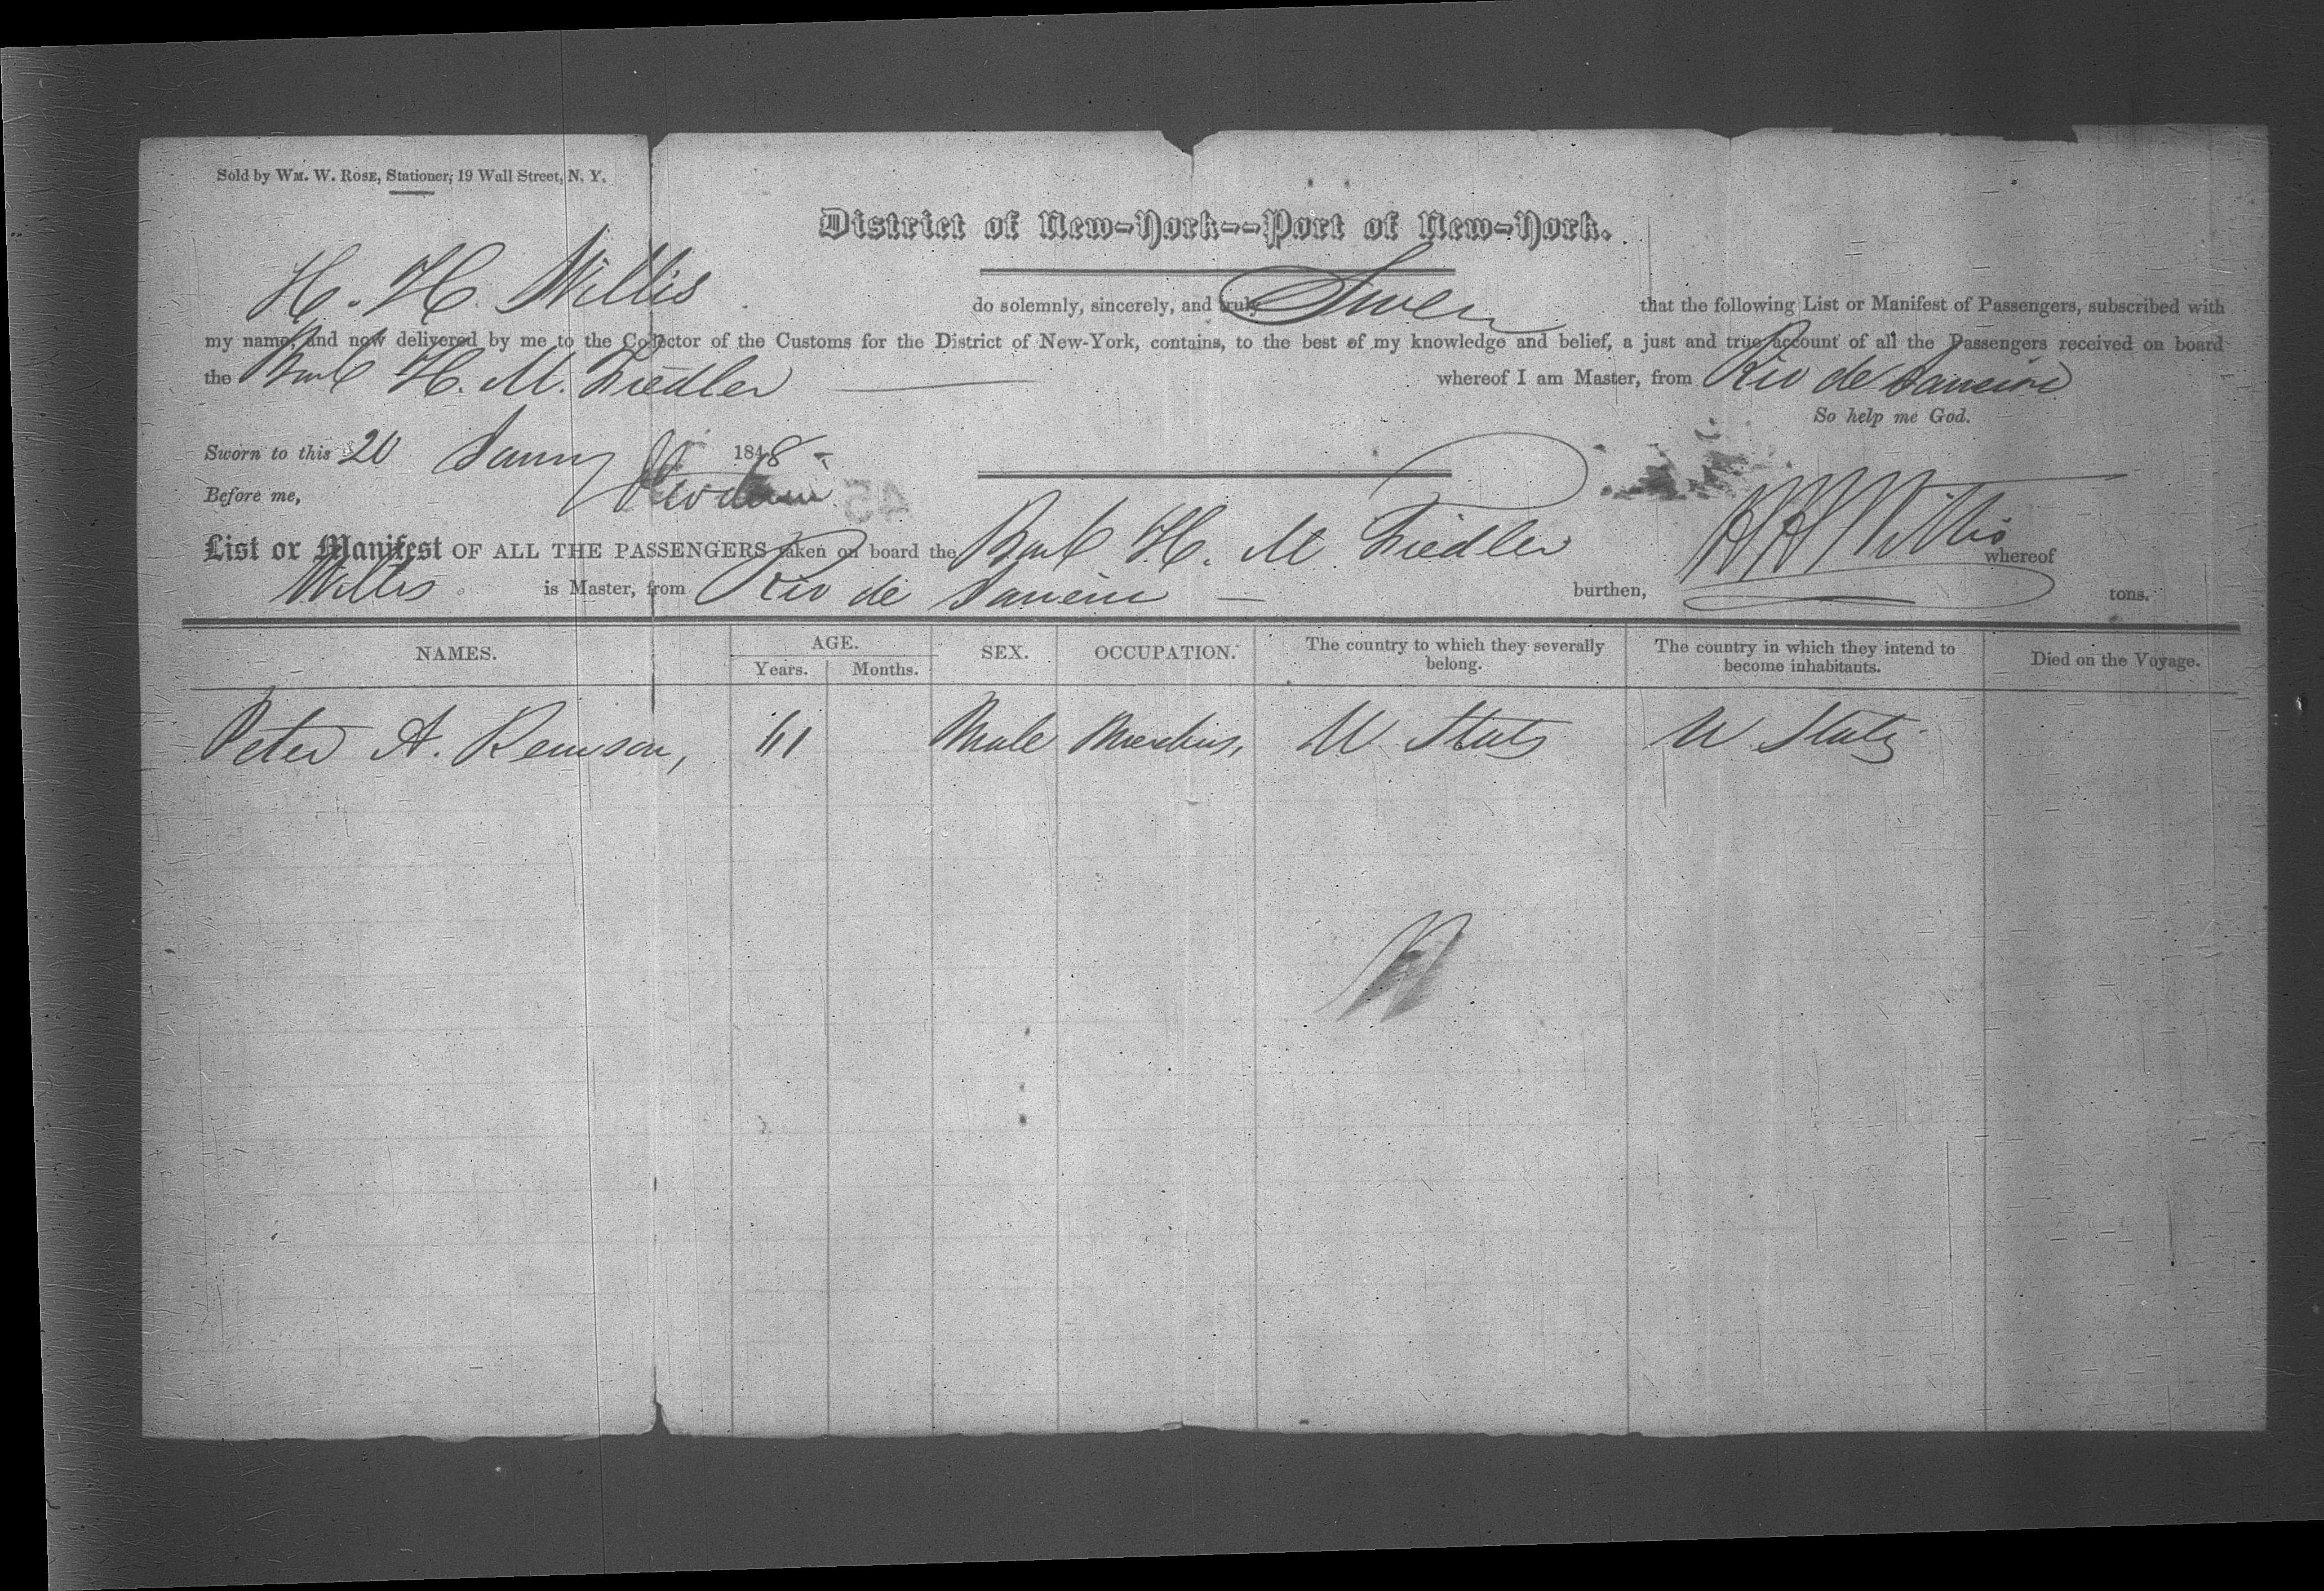 Sold by WM. W. ROSE, Stationer, 19 Wall Street, N. Y.
District of New-York--Port of New-York.
H. H. Willis do solemnly, sincerely, and truly Swear that the following List or Manifest of Passengers, subscribed with
my name, and now delivered by me to the Collector of the Customs for the District of New-York, contains, to the best of my knowledge and belief, a just and true account of all the Passengers received on board
the Bark H. M. Fiedler whereof I am Master, from Rio de Janeiro
So help me God.
Sworn to this 20 Jany 1848
Before me,
H H Willis
List or Manifest OF ALL THE PASSENGERS taken on board the Bark H. M. Fiedler whereof
Willis is Master, from Rio de Janeiro burthen, tons.
NAMES. AGE. SEX. OCCUPATION. The country to which they severally belong. The country in which they intend to become inhabitants. Died on the Voyage.
Years. Months.
Peter A. Remson, Male U States U States